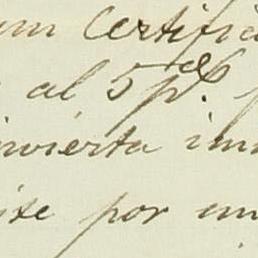 um Certifi
al 5 p.%
invierta in
ite por un